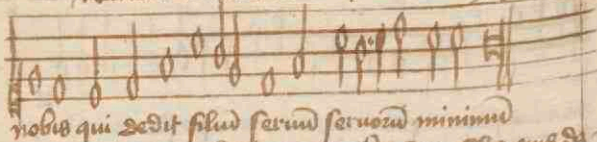 nobis qui dedit filiū seruū seruorū minimū